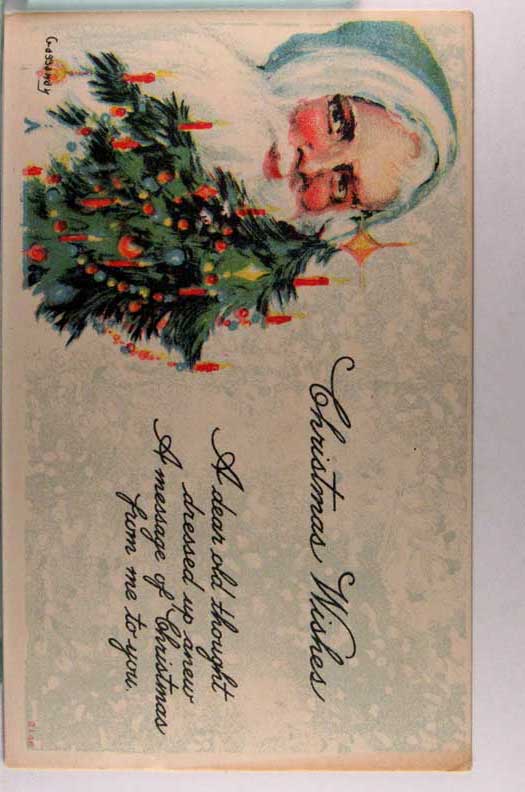 Christmas Wishes
A dear old thought
dressed up anew
A message of Christmas
from me to you.